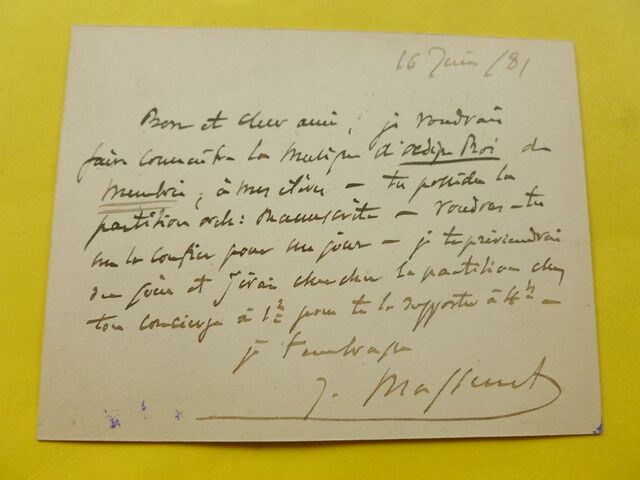 16 Juin /81
Bon et cher ami, je voudrais
faire connaître la musique d'œdipe Roi de
membrée, à mes élèves – tu possèdes la
partition orch: manuscrite – voudras-tu
me la confier pour un jour – je te préviendrai
du jour et j'irai chercher la partition chez
ton concierge à 1h pour te la rapporter à 4h –
je t'embrasse
J. Massenet